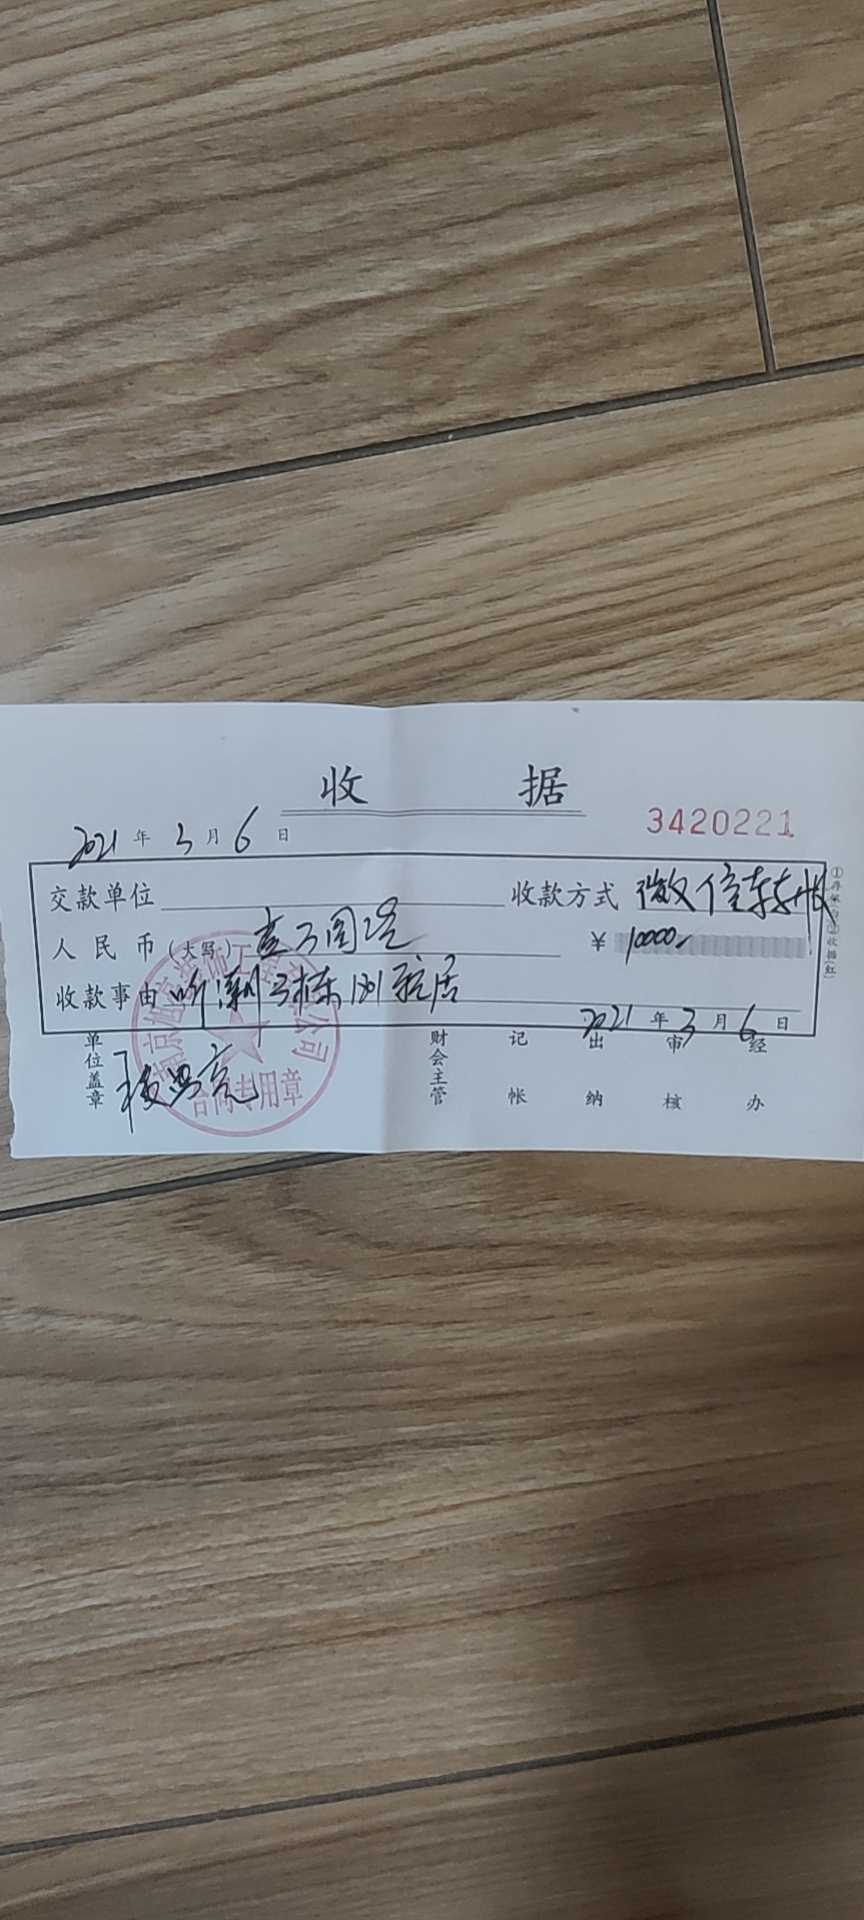 收 据
3420221
2021年3月6日
交款单位 收款方式 微信转帐
人民币(大写) 壹万圆 ¥ 10000-
收款事由 听潮 3栋
2021年3月6日
单位盖章 财会主管 记帐 出纳 审核 经办
公司
合同专用章